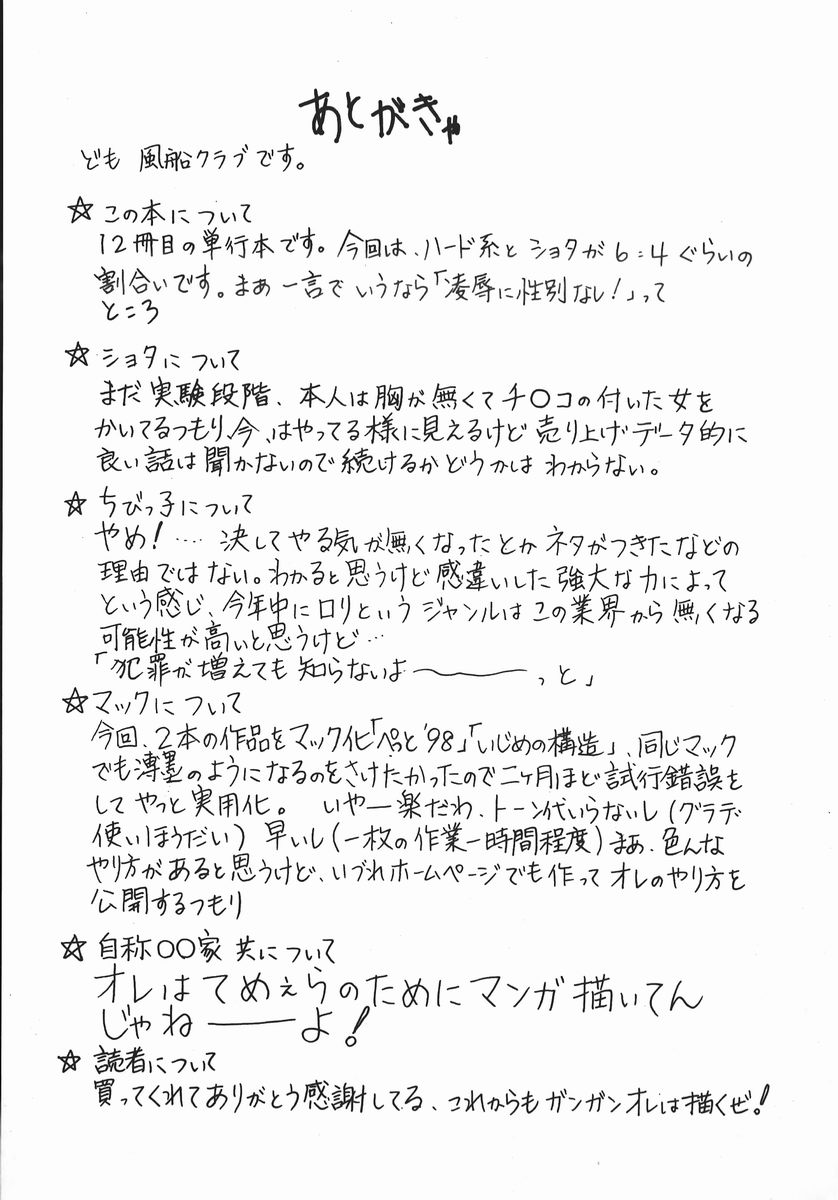 あとがきゃ
ども 風船クラブです。
☆ この本について
12冊目の単行本です。今回は、ハード系とショタが6:4ぐらいの
割合いです。まあ一言でいうなら「凌辱に性別なし!」って
ところ
☆ ショタについて
まだ実験段階、本人は胸が無くてチ〇コの付いた女を
かいてるつもり、今、はやってる様に見えるけど売り上げデータ的に
良い話は聞かないので続けるかどうかはわからない。
☆ ちびっ子について
やめ!‥‥ 決してやる気が無くなったとかネタがつきたなどの
理由ではない。わかると思うけど感違いした強大な力によって
という感じ、今年中にロリというジャンルはこの業界から無くなる
可能性が高いと思うけど…
「犯罪が増えても知らないよ〜〜っと」
☆ マックについて
今回、2本の作品をマック化「ぺっと'98」「いじめの構造」、同じマック
でも薄墨のようになるのをさけたかったので二ヶ月ほど試行錯誤を
してやっと実用化。 いやー楽だわ、トーン代いらないし(グラデ
使いほうだい) 早いし(一枚の作業一時間程度)まあ、色んな
やり方があると思うけど、いづれホームページでも作ってオレのやり方を
公開するつもり
☆ 自称〇〇家共について
オレはてめぇらのためにマンガ描いてん
じゃねーーよ!
☆ 読者について
買ってくれてありがとう感謝してる、これからもガンガンオレは描くぜ。!